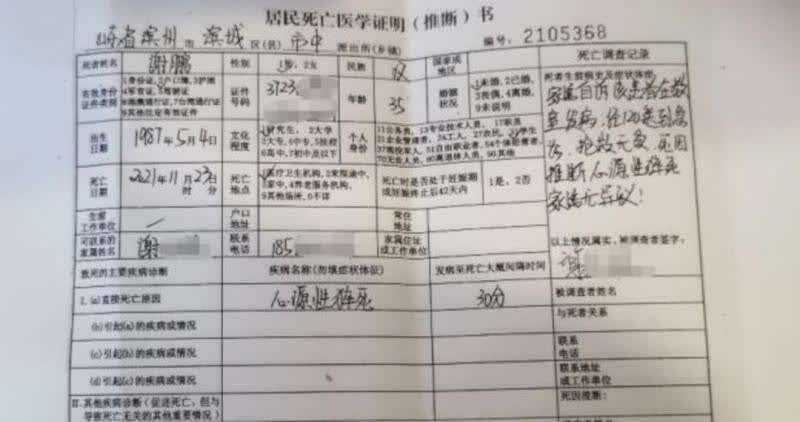 居民死亡医学证明（推断）书
山东省滨州市 滨城 区(县) 市中 派出所(乡镇) 编号：2105368
死者姓名 谢鹏 性别 1男，2女 民族 汉 国家或地区 死亡调查记录
有效身份证件类别 1身份证，2户口簿，3护照 4军官证，5驾驶证 6港澳通行证，7台湾通行证 9其他法定有效证件 证件号码 3723 年龄 35 婚姻状况 1未婚，2已婚，3丧偶，4离婚，9未说明
死者生前病史及症状体征：
家选自诉该患者在
发病，经120送到急
诊，抢救无效，死因
推断心源性猝死
家属无异议！
出生日期 1987年5月4日 文化程度 1研究生，2大学 3大专，4中专，5技校 6高中，7初中及以下 个人身份 11公务员，13专业技术人员，17职员 21企业管理者，24工人，27农民，31学生 37现役军人，51自由职业者，54个体经营者 70无业人员，80离退休人员，90其他
死亡日期 2021年11月23日 时 分 死亡地点 1医疗卫生机构，2来院途中，3家中，4养老服务机构，9其他场所，0不详 死亡时是否处于妊娠期或妊娠终止后42天内 1是，2否
生前工作单位 户口地址 常住地址
可联系的家属姓名 谢 联系电话 185 家属住址或工作单位
以上情况属实，被调查者签字：
致死的主要疾病诊断 疾病名称(勿填症状体征) 发病至死亡大概间隔时间
I.(a)直接死亡原因 心源性猝死 30分 被调查者姓名
(b)引起(a)的疾病或情况 与死者关系
(c)引起(b)的疾病或情况 联系电话
(d)引起(c)的疾病或情况 联系地址或工作单位
II.其他疾病诊断(促进死亡，但与导致死亡无关的其他重要情况) 死因推断：